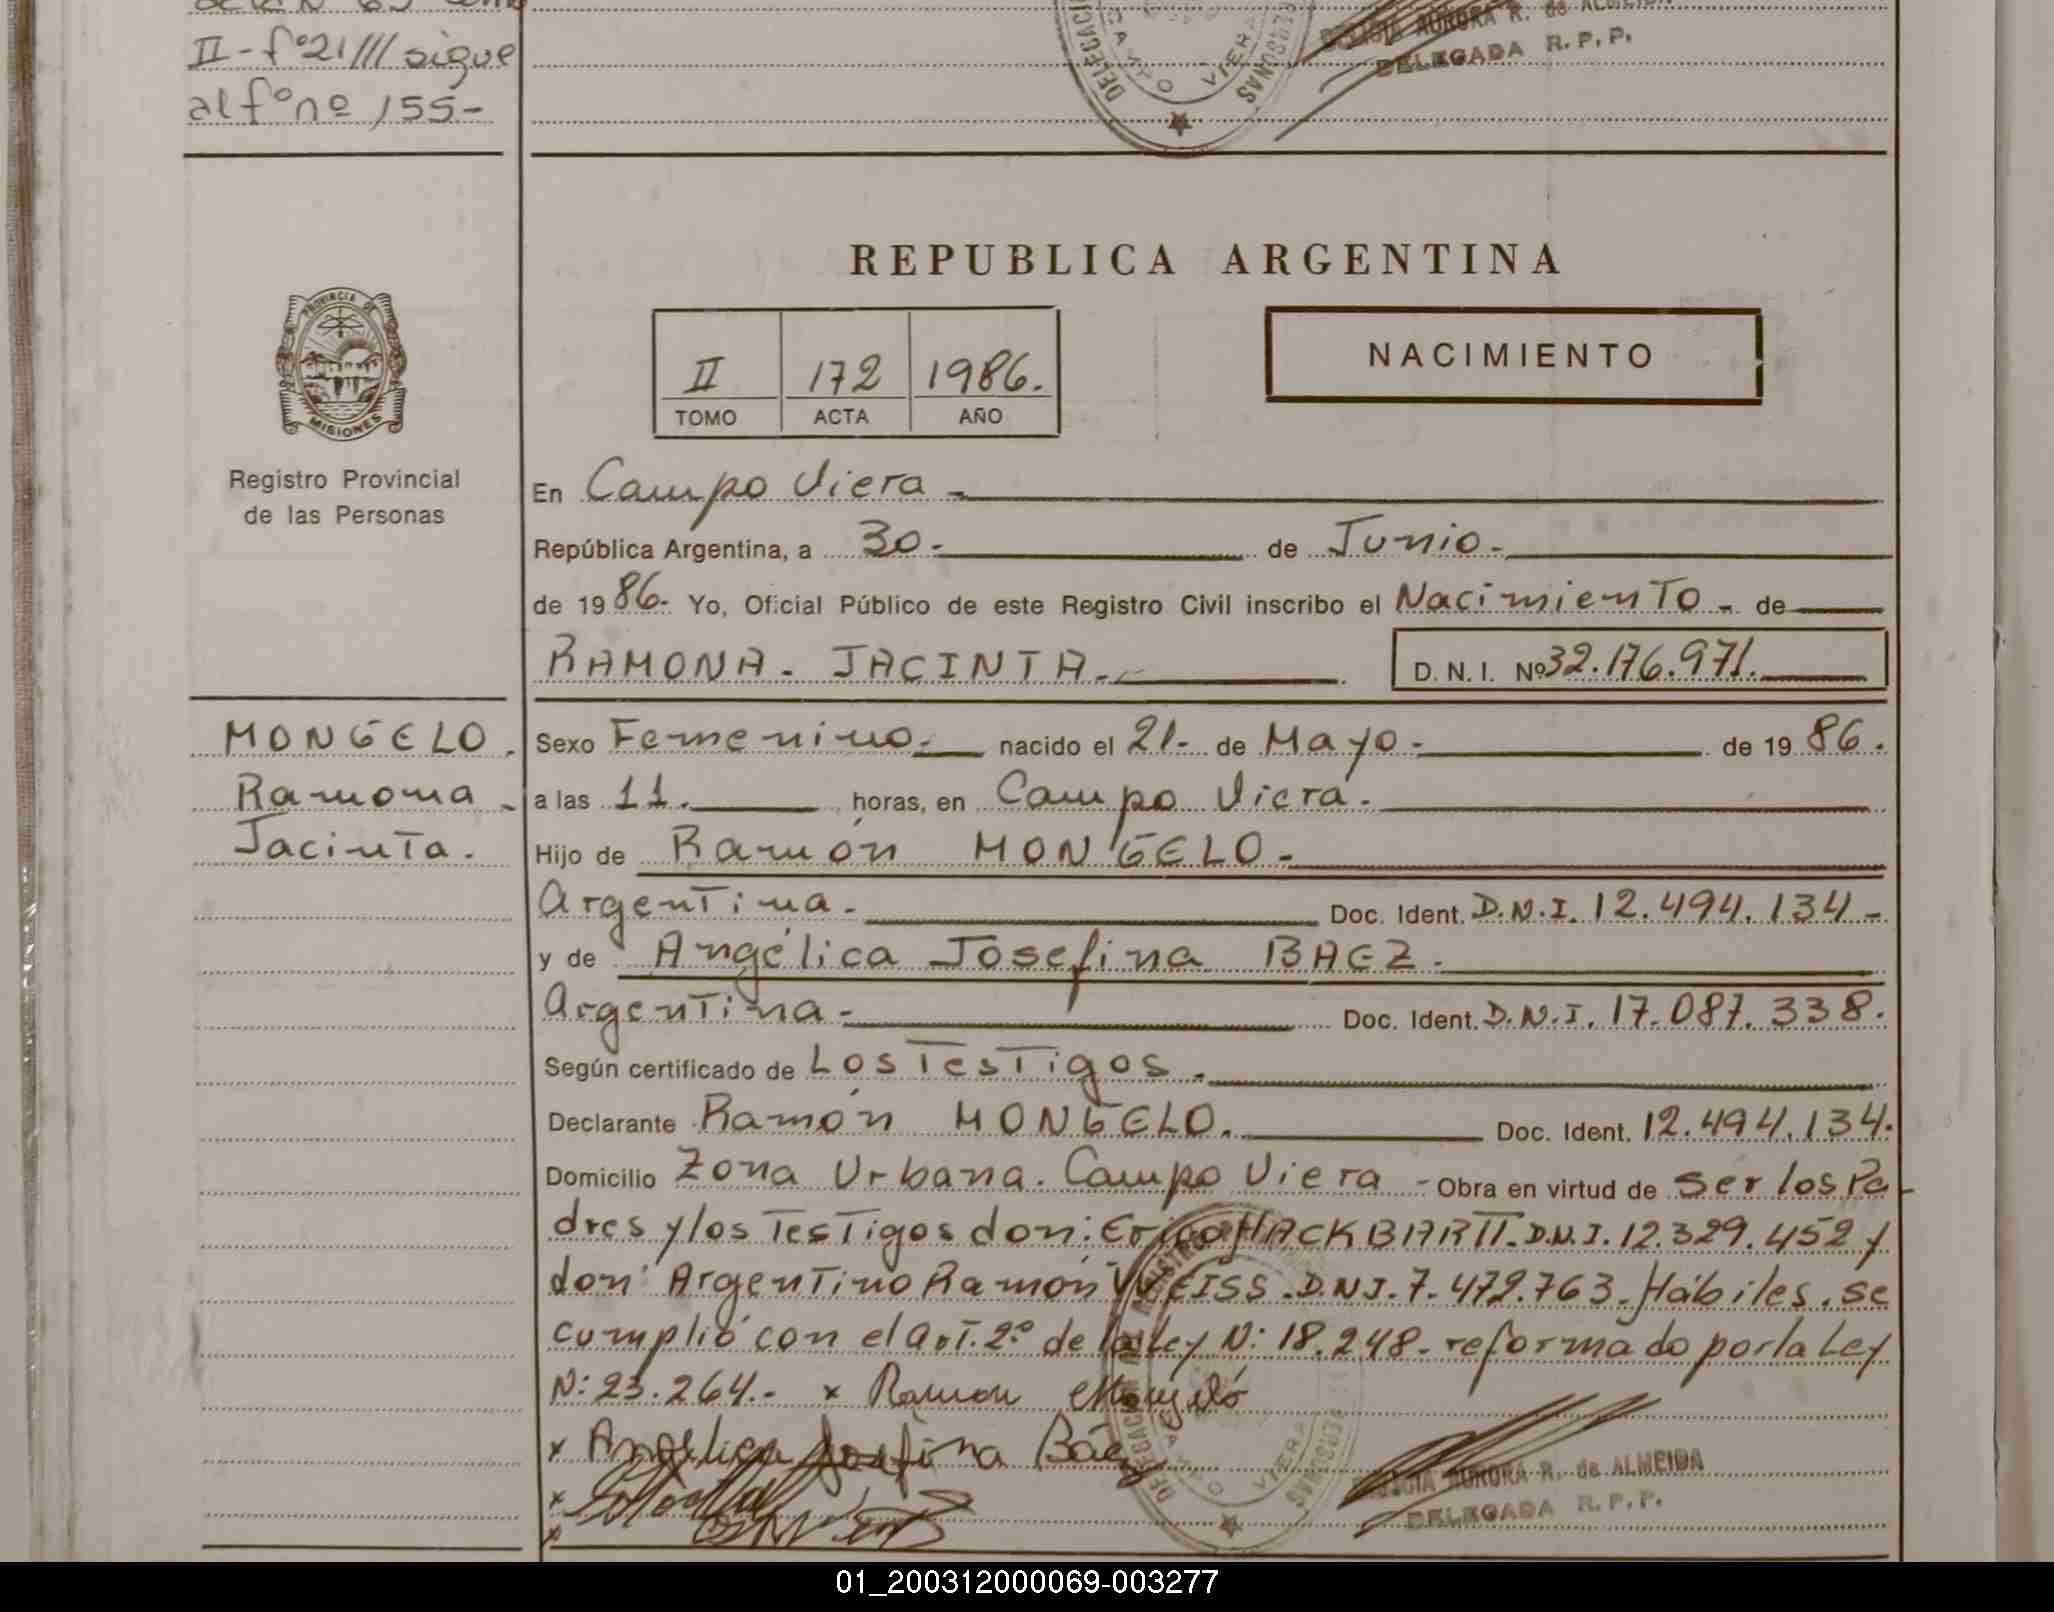 II - fº 21 /// sigue
al fº nº 155-
DELEGADA R. P. P.
CAMPO VIERA
REPUBLICA ARGENTINA
PROVINCIA DE
MISIONES
II 172 1986.
TOMO ACTA AÑO
NACIMIENTO
Registro Provincial
de las Personas
En Campo Viera -
República Argentina, a 30.- de Junio.-
de 1986.- Yo, Oficial Público de este Registro Civil inscribo el Nacimiento - de
RAMONA - JACINTA.- D. N. I. Nº 32.176.971.
MONGELO.
Ramona -
Jacinta.
Sexo Femenino.- nacido el 21.- de Mayo.- de 19 86.
a las 11. horas, en Campo Viera.
Hijo de Ramón MONGELO.-
Argentina.- Doc. Ident. D.N.I. 12.494.134 -
y de Angélica Josefina BAEZ.
Argentina.- Doc. Ident. D.N.I. 17.087.338.
Según certificado de Los Testigos.
Declarante Ramón MONGELO. Doc. Ident. 12.494.134.
Domicilio Zona Urbana. Campo Viera - Obra en virtud de ser los Pa-
dres y los Testigos don: Erico HACKBARTT. D.N.I. 12.329.452 y
don: Argentino Ramón WEISS. D.N.I. 7.472.763. Hábiles. se
cumplió con el art. 2º de la Ley N: 18.248. reformado por la Ley
N: 23.264.- x Ramon Mongeló
x Angélica Josefina Báez
x
x
AURORA R. de ALMEIDA
DELEGADA R. P. P.
01_200312000069-003277